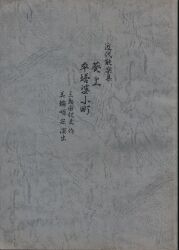 近代能楽集
葵上
卒塔婆小町
三島由紀夫作
美輪明宏演出